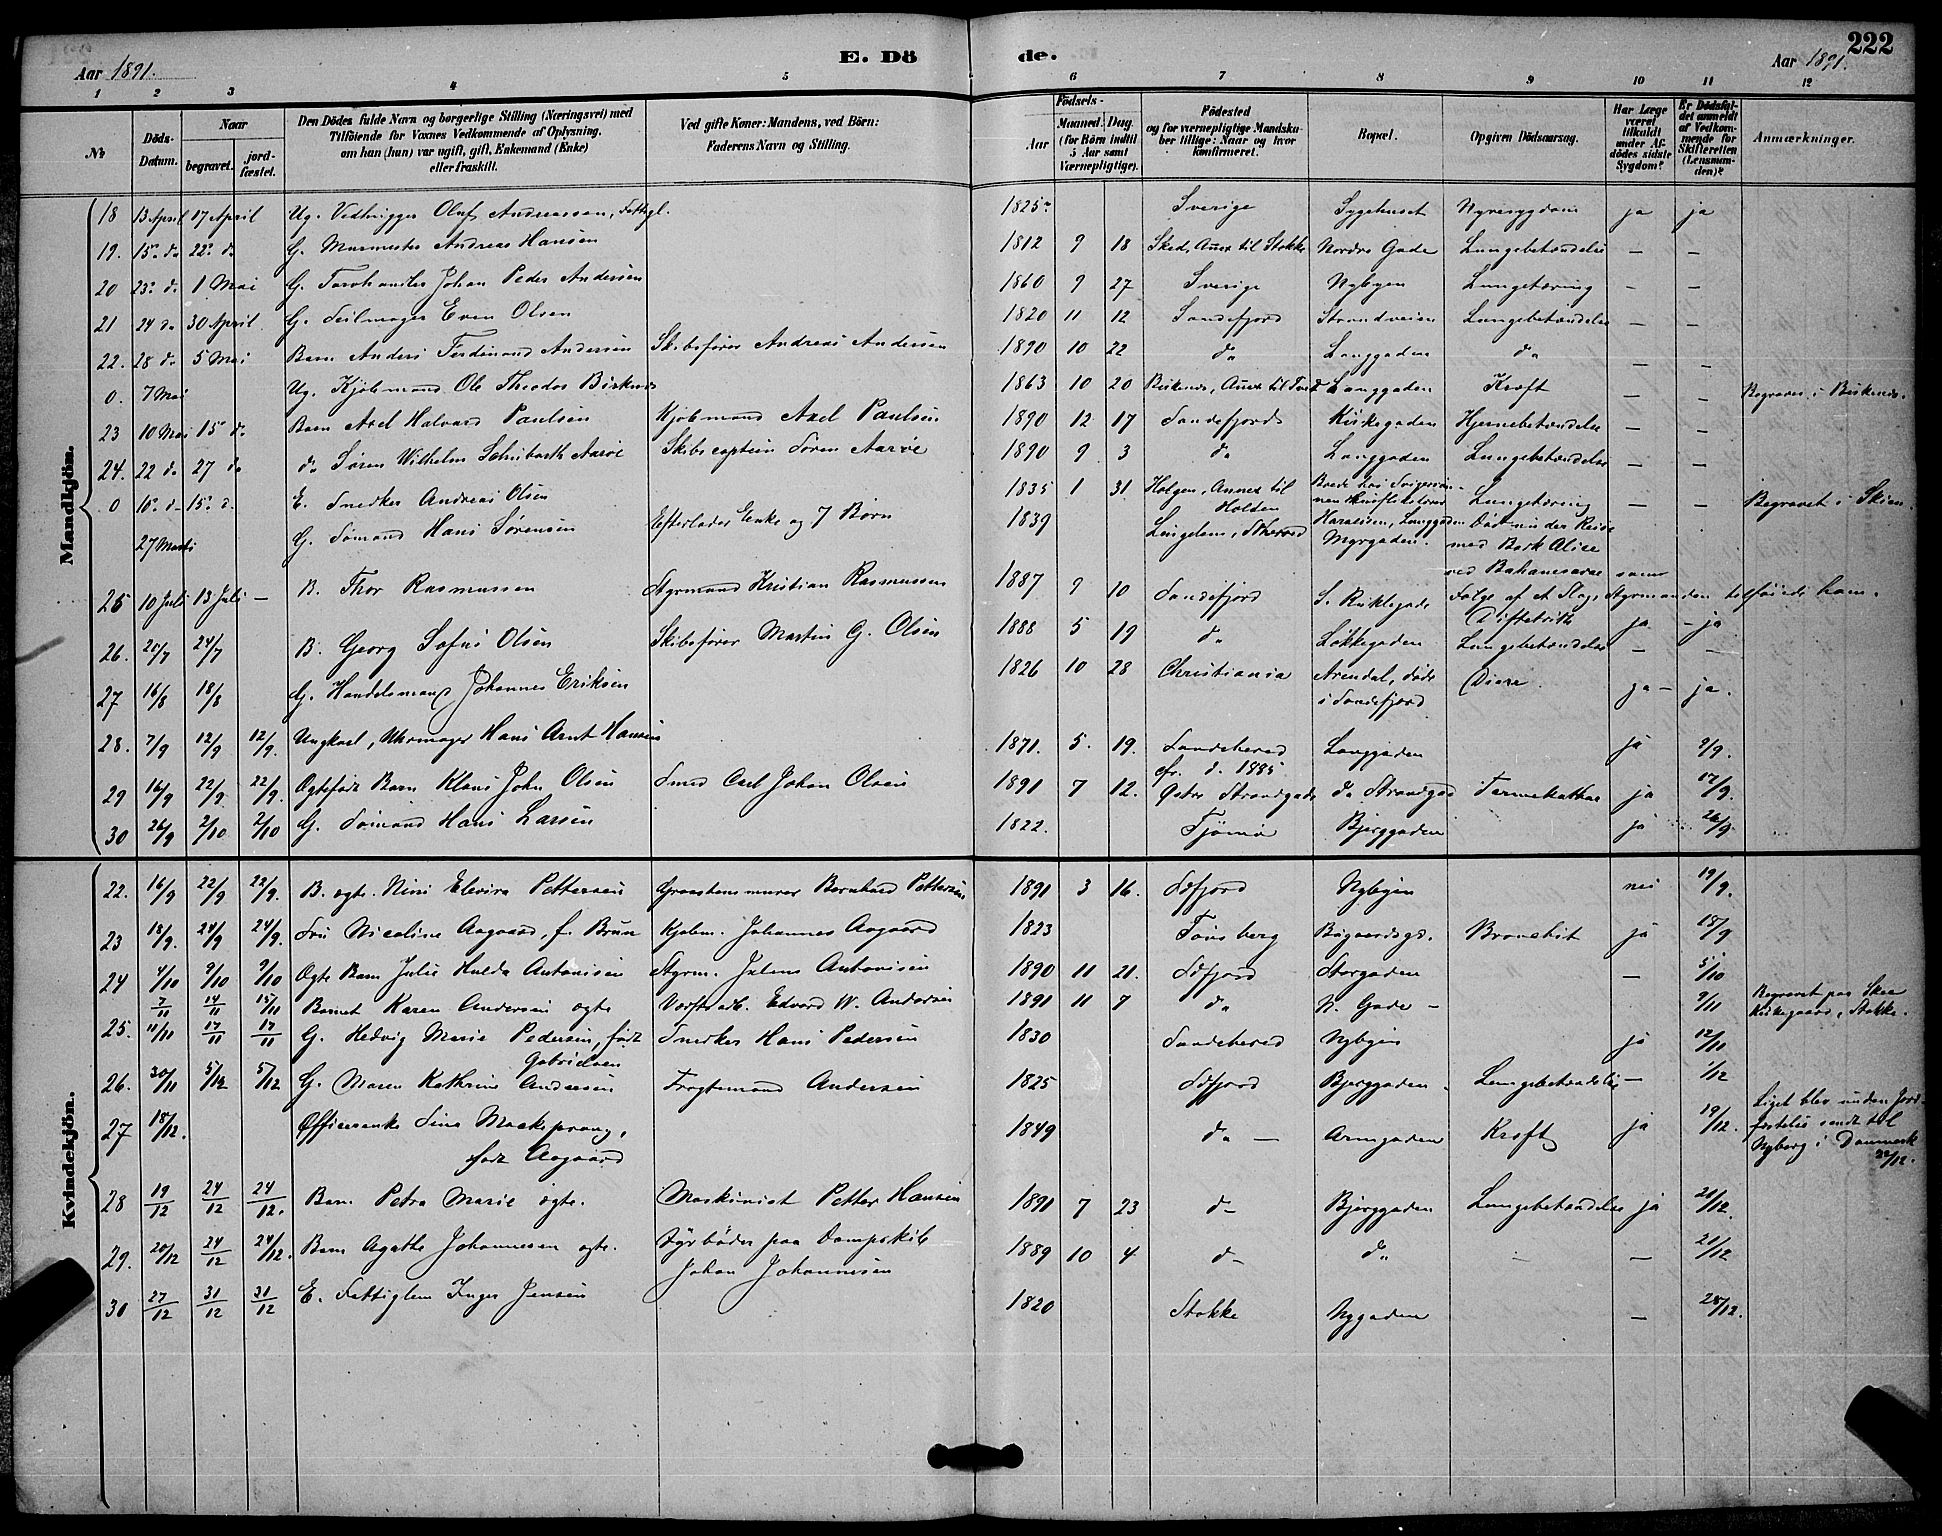 222
Aar 1891. E. Dö de. Aar 1891.
1 2 3 4 5 6 7 8 9 10 11 12
No Döds-Datum. Naar begravet. jord-fæstet. Den Dödes fulde Navn og borgerlige Stilling (Næringsvei) med Tilföiende for Voxnes Vedkommende af Oplysning, om han (hun) var ugift, gift, Enkemand (Enke) eller fraskilt. Ved gifte Koner: Mandens, ved Börn: Faderens Navn og Stilling. Födsels- Aar Maaned. Dag. (for Börn indtil 5 Aar samt Værnepligtige). Födested og for værnepligtige Mandska-ber tillige: Naar og hvor konfirmeret. Bopæl. Opgiven Dödsaarsag. Har Læge været tilkaldt under Af-dödes sidste Sygdom? Er Dödsfal-det anmeldt af Vedkom-mende for Skifteretten (Lensman-den)? Anmærkninger.
Mandkjön.
18 13 April 17 April Ug. Vedhugger Oluf Andreassen, Fattigl. 1825 Sverige Sygehuset Nyresygdom ja ja
19. 15 do 22 do G. Murmester Andreas Hansen 1812 9 18 Skee, Anex til Stokke Nordre Gade Lungebetændelse — —
20 23 do 1 Mai G. Johan Peder Andersen 1860 9 27 Sverige Nybyen Lungetæring — —
21 24 do 30 April G. Seilmager Even Olsen 1820 11 12 Sandefjord Strandveien Lungebetændelse — —
22. 28 do 5 Mai Barn Anders Ferdinand Andersen Skibsfører Andreas Andersen 1890 10 22 do Langgaden do — —
0. 7 Mai Ug. Kjöbmand Ole Theodor Birkenes 1863 10 20 Birkenes, Anex til Langgaden Kræft — — Begraves i Birkenes.
23 10 Mai 15 do Barn Axel Halvard Paulsen Kjöbmand Axel Paulsen 1890 12 17 Sandefjord Kirkegaden Hjernebetændelse — —
24. 22 do 27 do do Sören Wilhelm Schubarth Aarøe Skibscaptein Sören Aarøe 1890 9 3 do Langgaden Lungebetændelse — —
0 10 do 15 d. E. Snedker Andreas Olsen 1835 1 31 Holgen, Annex til Holden Boede hos Svigersön-nen Lungetæring — — Begravet i Skien.
27 Marts G. Sömand Hans Sörensen Efterlader Enke og 7 Börn 1839 Myrgaden. Död under Reise med Bark Alice ved Bahamasaræ som
25 10 Juli 13 Juli — B. Thor Rasmussen Styrmand Kristian Rasmussen 1887 9 10 Sandefjord Fölge af et Slag, Styrmanden tilföiede ham. Difterith ja - ja
26. 20/7 24/7 B. Georg Sofus Olsen Skibsfører Martin G. Olsen 1888 5 19 do Løkkegaden Lungebetændelse — —
27 16/8 18/8 G. Handelsmand Johannes Eriksen 1826 10 28 Christiania Arendal, död i Sandefjord Diare. ja — ja.
28. 7/9 12/9 12/9. Ungkarl, Uhrmager Hans Arnt Hansen 1871. 5. 19. Sandeherred cfr. d. 1885. Langgaden ja 9/9.
29 16/9 22/9 22/9. Ægtefødt Barn Klaus John Olsen Smed Carl Johan Olsen 1891 7 12. Østre Strandgade do Strandgad Tarmekathar ja 17/9.
30 26/9 2/10 2/10 G. Sömand Hans Larsen 1822. Tjömö Bjerggaden ja 26/9.
Kvindekjön.
22. 16/9 22/9 22/9. B. ægte. Nini Elevira Pettersen Graastensmurer Bernhard Pettersen 1891 3 16. Sdfjord Nybyen nei 19/9.
23 18/9. 24/9 24/9. Fru Nicoline Aagaard, f. Bruun Kjøbm. Johannes Aagaard 1823 Tönsberg Bugaardsgd. Bronchit ja 18/9
24 4/10 9/10 9/10 Ægte Barn Julie Hulda Antonisen Styrm. Julius Antonisen 1890 11 21. Sdfjord Storgaden — 5/10
7/11 14/11 15/11 Barnet Karen Andersen ægte Værftsarb. Edvard W. Andersen 1891 11 7 do N. Gade — 9/11 Begravet paa Skee Kirkegaard, Stokke.
25. 11/11 17/11 17/11 G. Hedvig Marie Pedersen, född Gabrielsen Snedker Hans Pedersen 1830 Sandeherred Nybyen ja 12/11
26. 30/11 5/12 5/12 G. Maren Kathrine Andersen Fragtemand Andersen 1825 Sdfjord Bjerggaden Lungebetændelse — 1/12
27 18/12. Officersenke Sina Mackeprang, född Aagaard 1849 do — Armgaden Kræft ja 19/12. Liget blev uden Jord-fæstelse sendt til Nyborg i Danmark 22/12.
28 19/12 24/12 24/12. Barn Petra Marie ægte. Maskinist Petter Hansen 1891 7 23 d— Bjerggaden Lungebetændelse ja 20/12.
29. 20/12 24/12 24/12. Barn Agathe Johannesen ægte. Fyrböder paa Dampskib Johan Johannesen 1889 10 4 d— do — — 21/12
30 27/12 31/12 31/12 E. Fattiglem Inger Jensen 1820 Stokke Nygaden — 28/12.